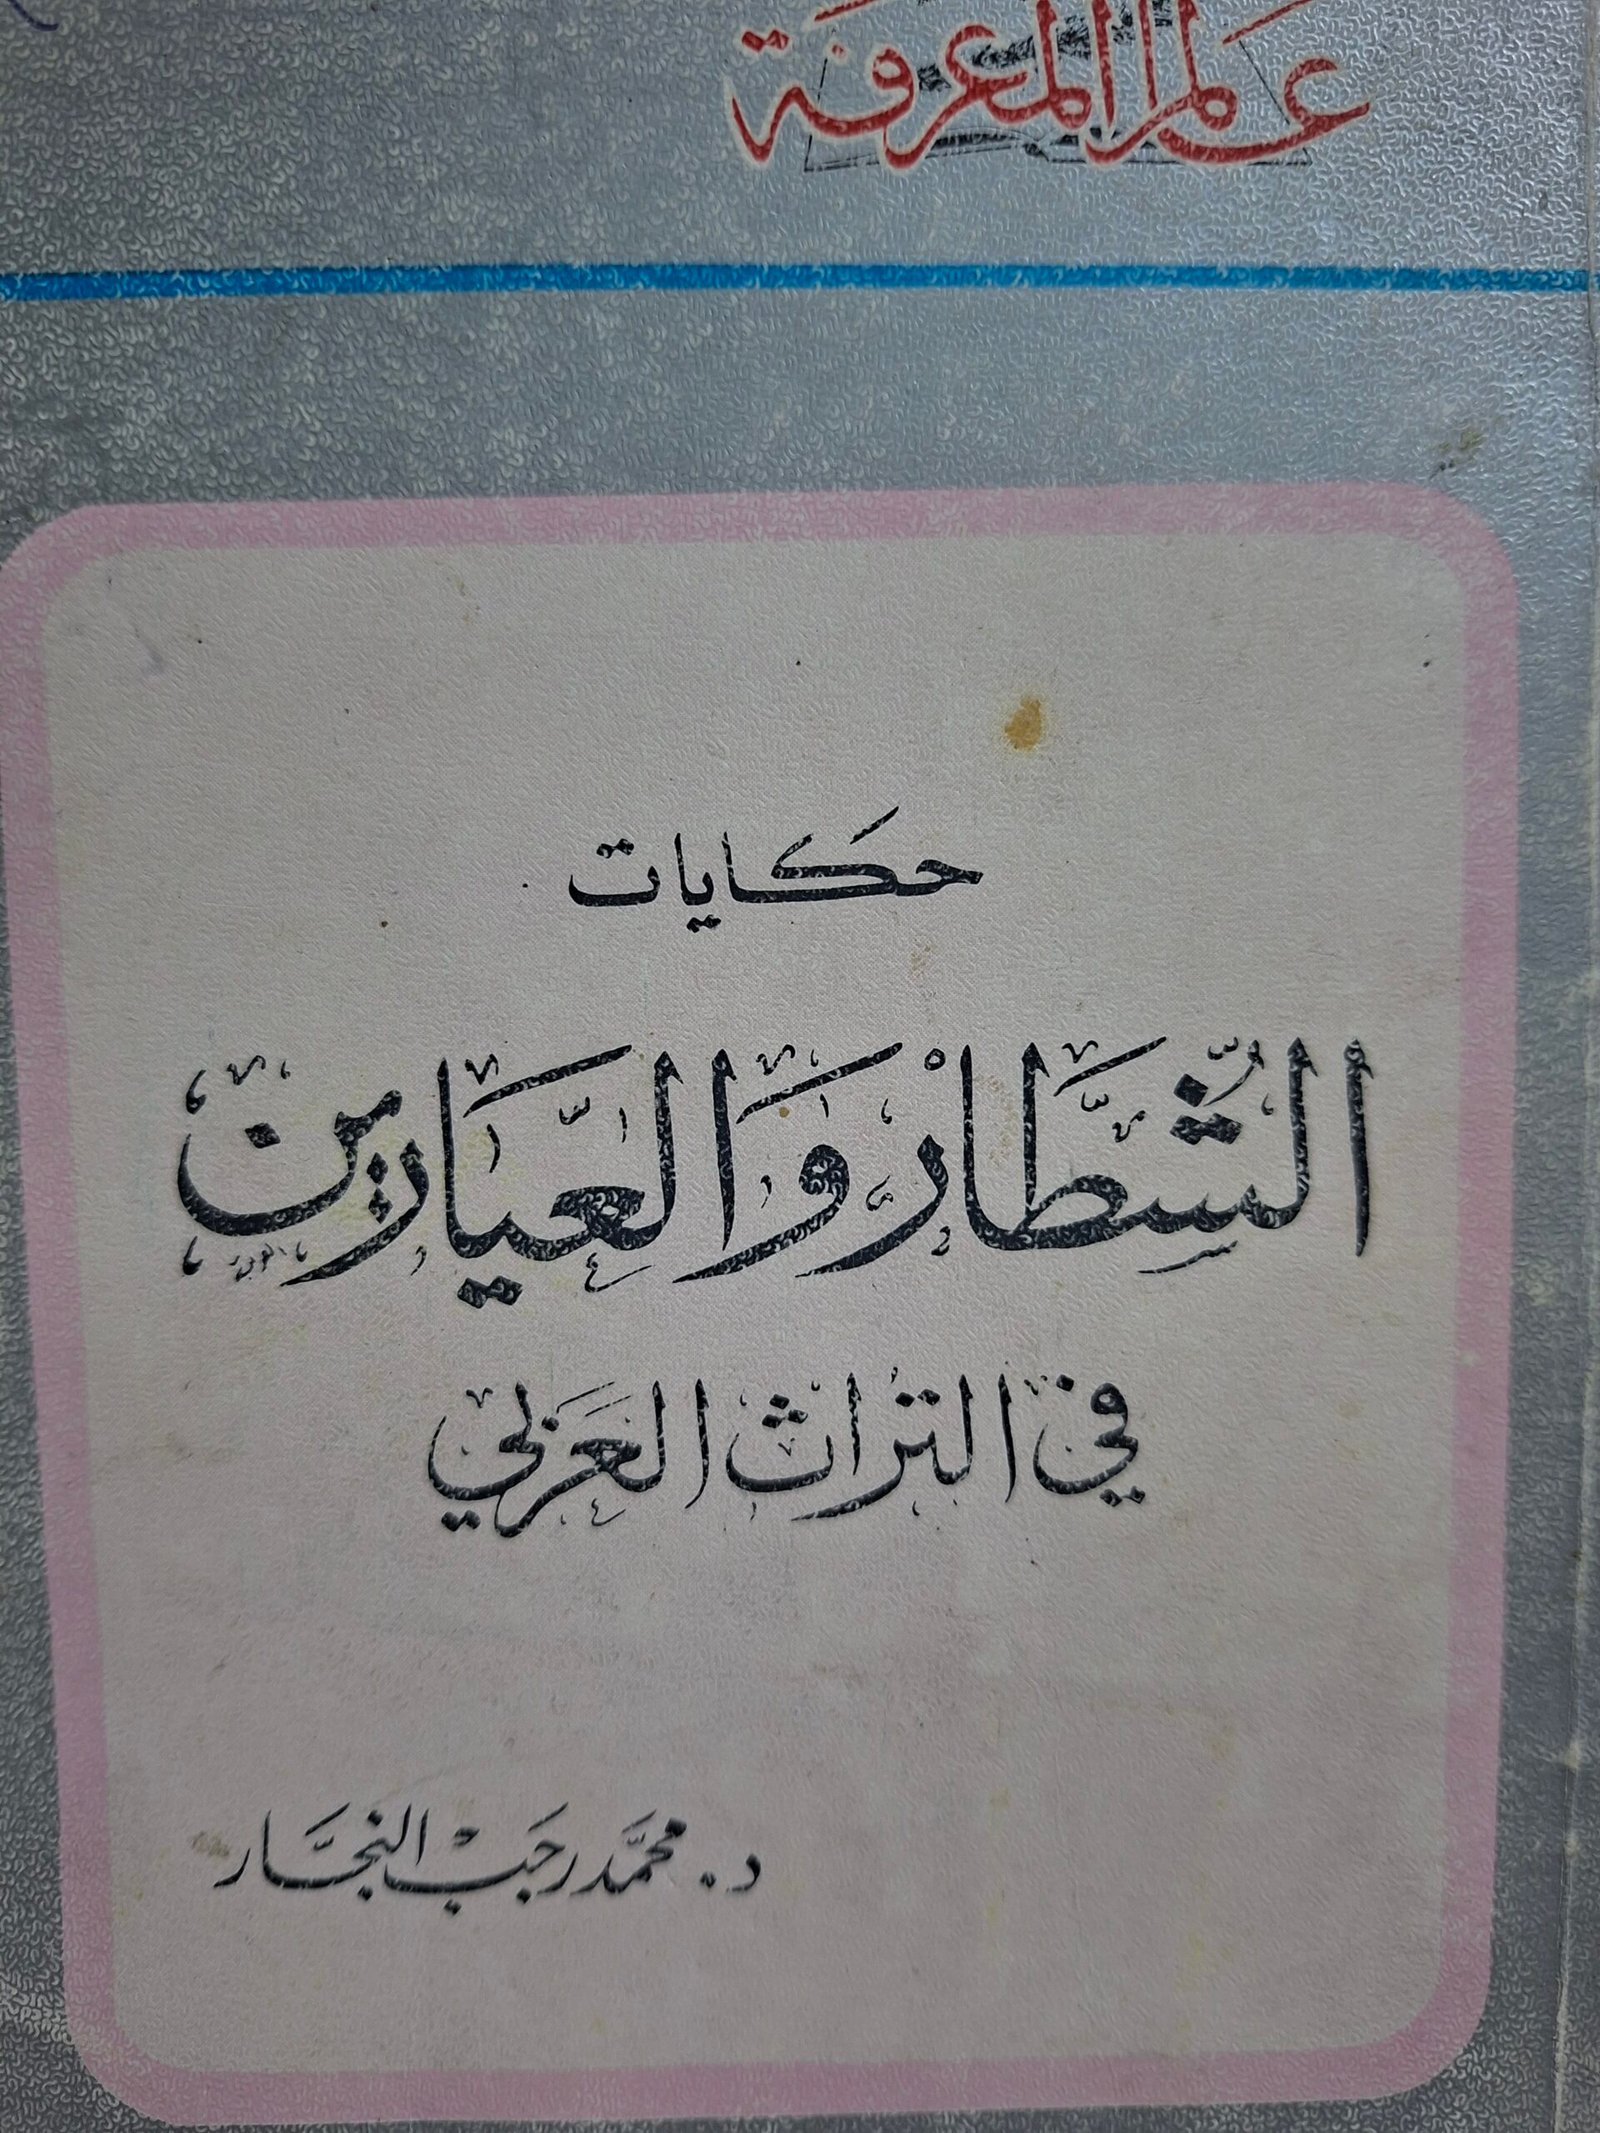 عالم المعرفة
حكايات
الشُّطَّارْ وَالعَيَّارِين
في التُراث العَرَبي
د. محمَّد رجَبْ النجَّار